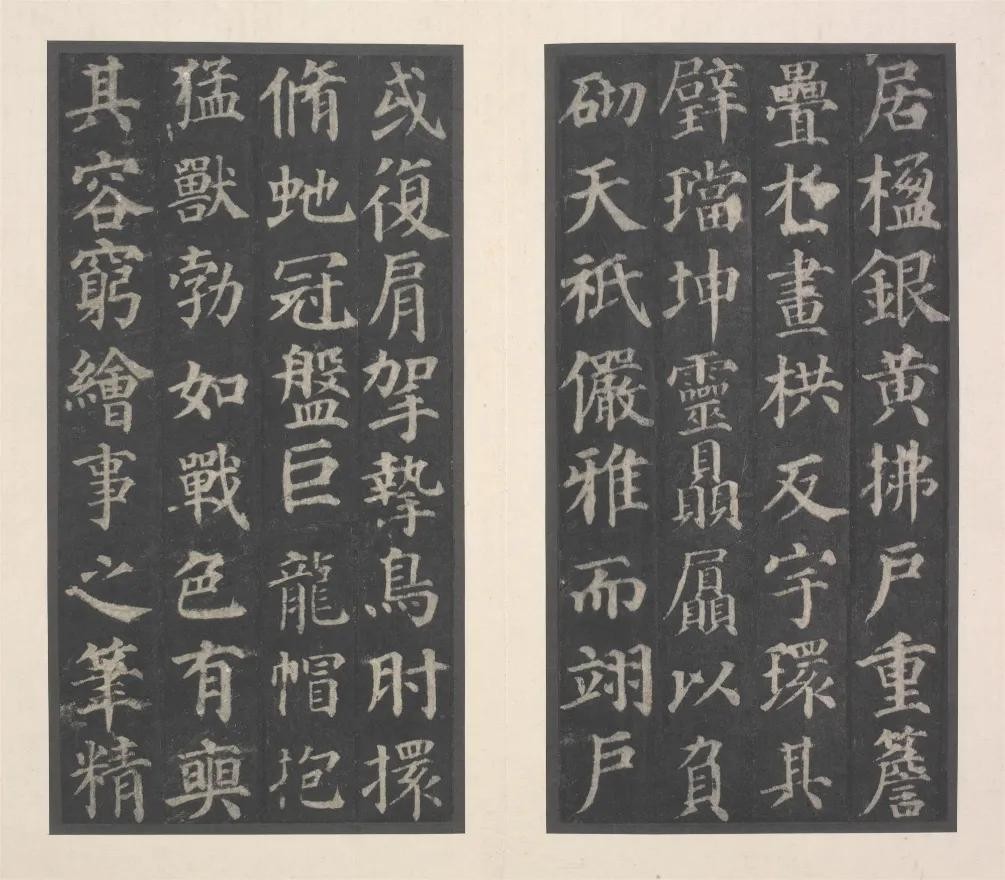 居楹銀黃拂戶重簷
疊扵畫栱反宇環其
璧璫坤靈贔屭以負
砌天祇儼雅而翊戶
或復肩挐摯鳥肘擐
脩虵冠盤巨龍帽抱
猛獸勃如戰色有奭
其容窮繪事之筆精